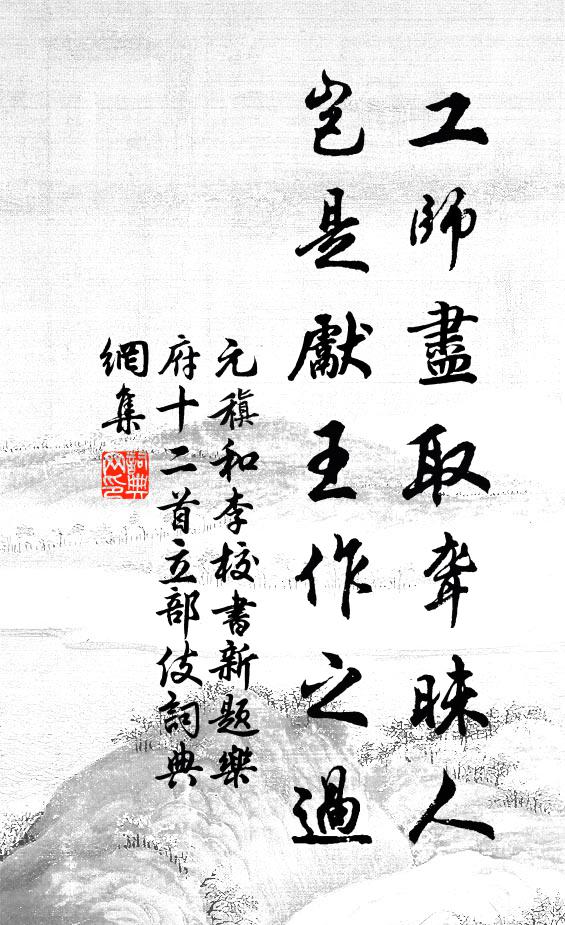 工師盡取聾昧人
豈是獻王作之過
元稹和李校書新題樂
府十二首立部伎詞典
網集
詞典網